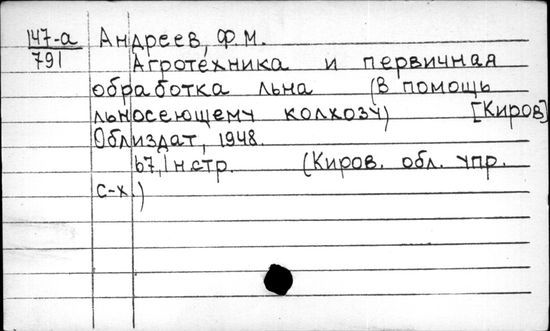 147-а Андреев, Ф.М.
791
Агротехника и первичная
обработка льна (В помощь
льносеющему колхозу) [Киров]
Облиздат, 1948.
67, 1 н.стр. (Киров. обл. упр.
с-х.)